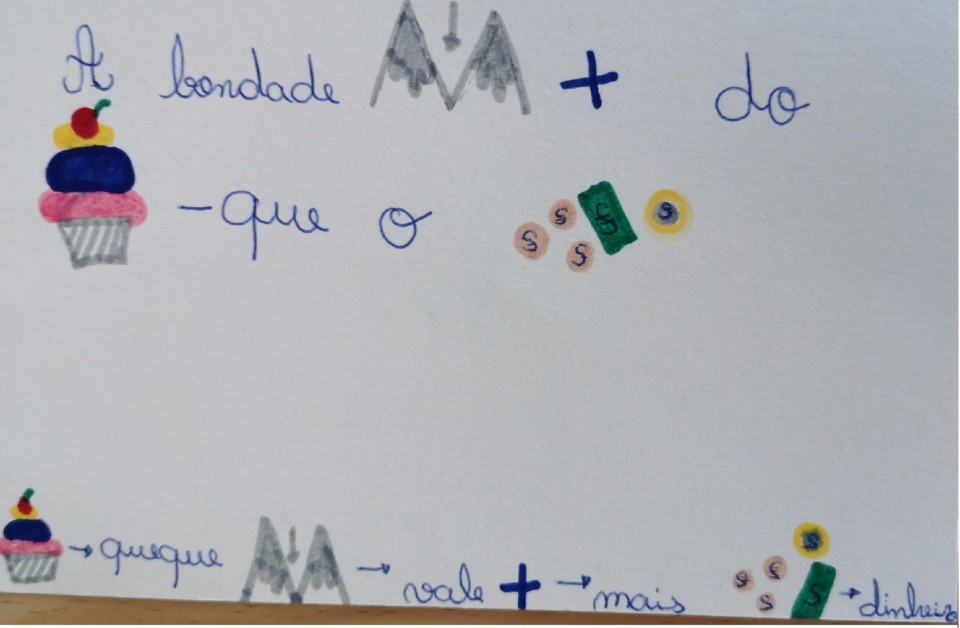 A bondade + do
-que o
S S S $ S
→ queque → vale + → mais → dinheiro
S S S S S